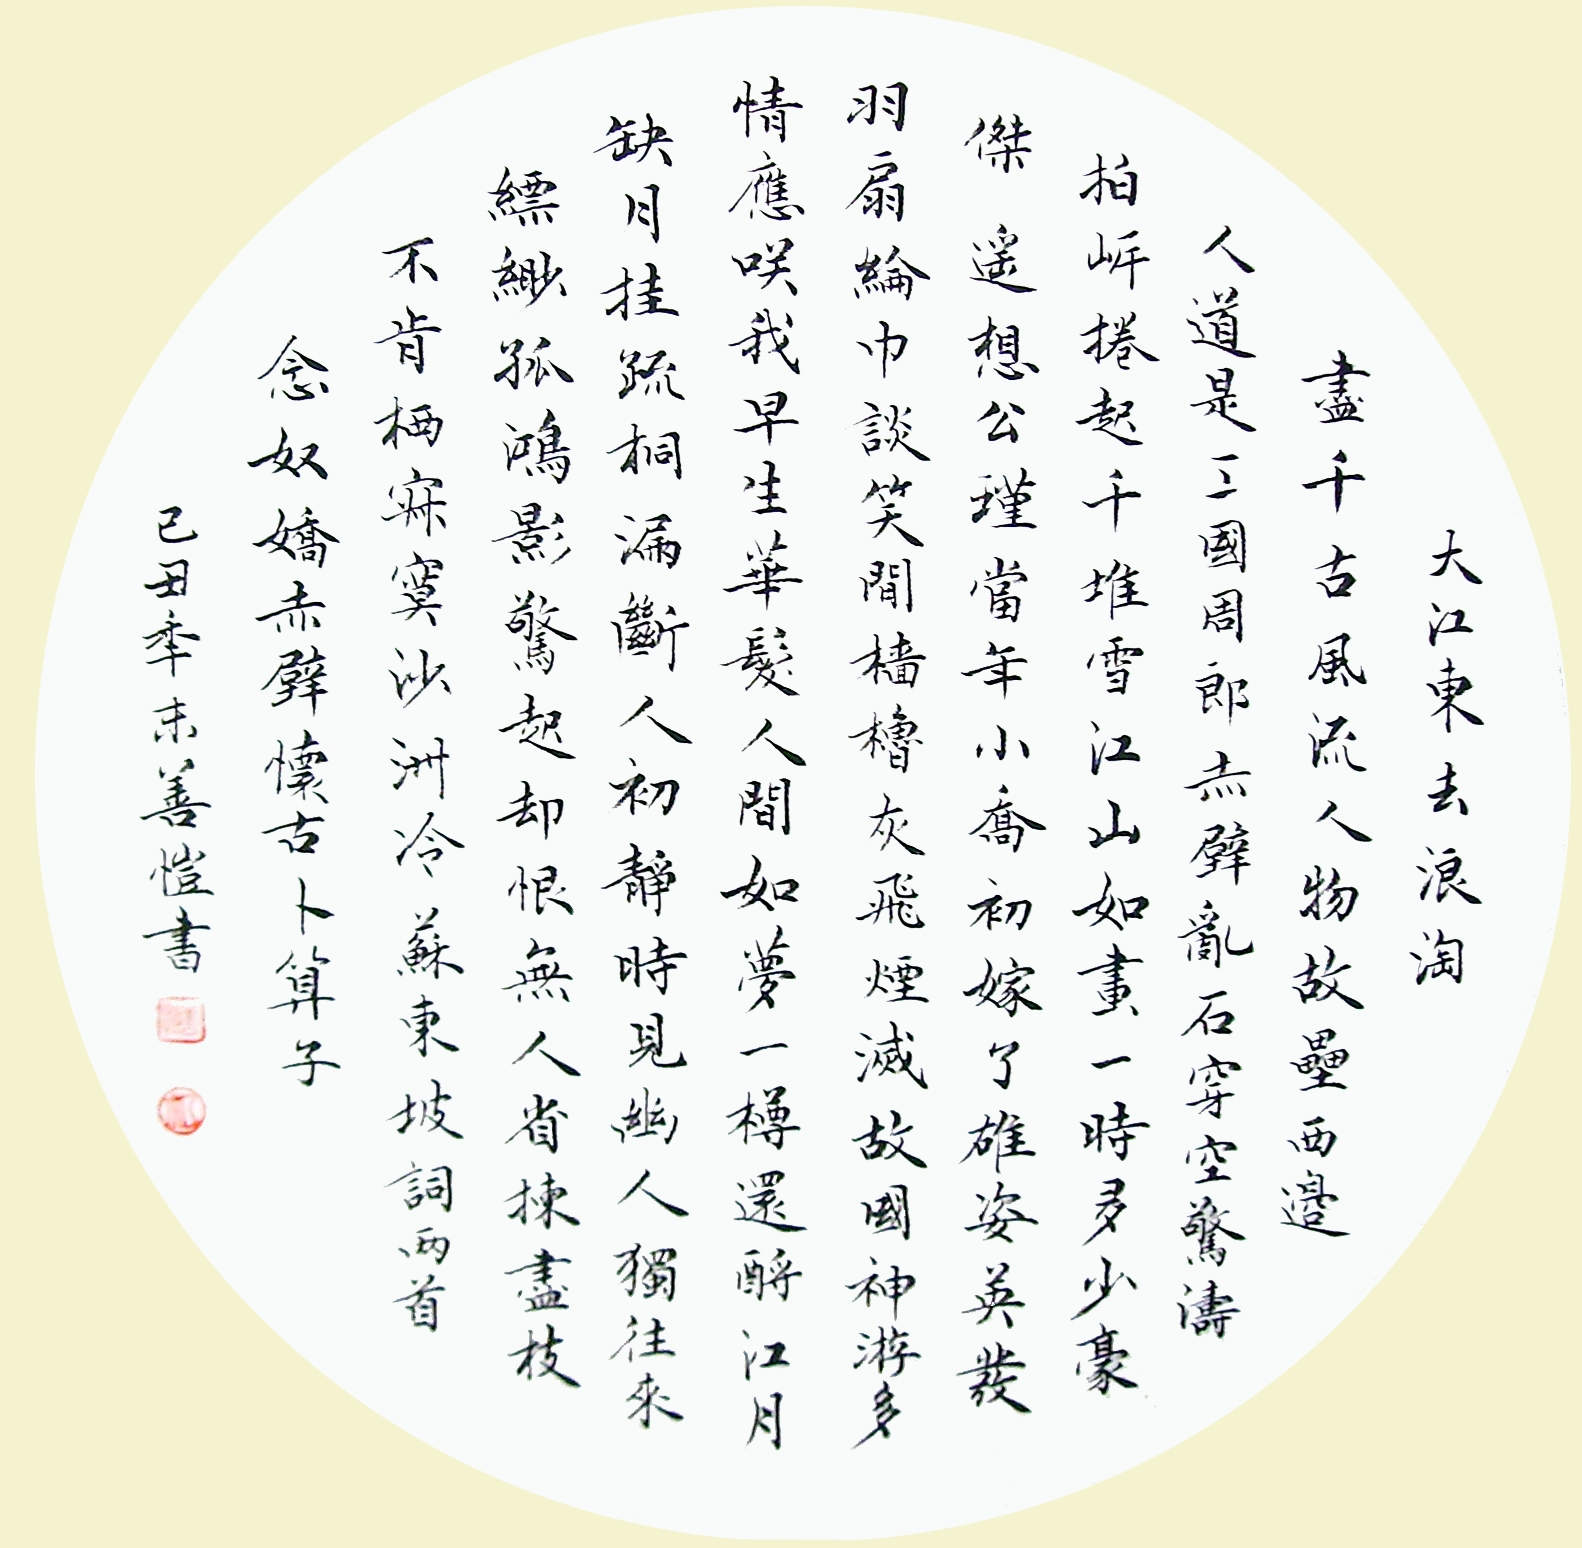 大江東去浪淘
盡千古風流人物故壘西邊
人道是三國周郎赤壁亂石穿空驚濤
拍岸捲起千堆雪江山如畫一時多少豪
傑 遥想公瑾當年小喬初嫁了雄姿英發
羽扇綸巾談笑間檣櫓灰飛煙滅故國神游多
情應咲我早生華髮人間如夢一樽還酹江月
缺月挂疏桐漏斷人初靜時見幽人獨往來
縹緲孤鴻影驚起却恨無人省揀盡枝
不肯栖寂寞沙洲冷 蘇東坡詞兩首
念奴嬌赤壁懷古卜算子
己丑年末善愷書